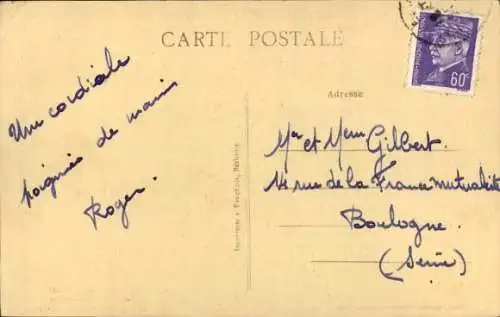 CARTE POSTALE
60c
Adresse
Une cordiale
poignée de mains
Roger.
Mr et Mme Gilbert
14 rue de la France mutualiste
Boulogne
(Seine)